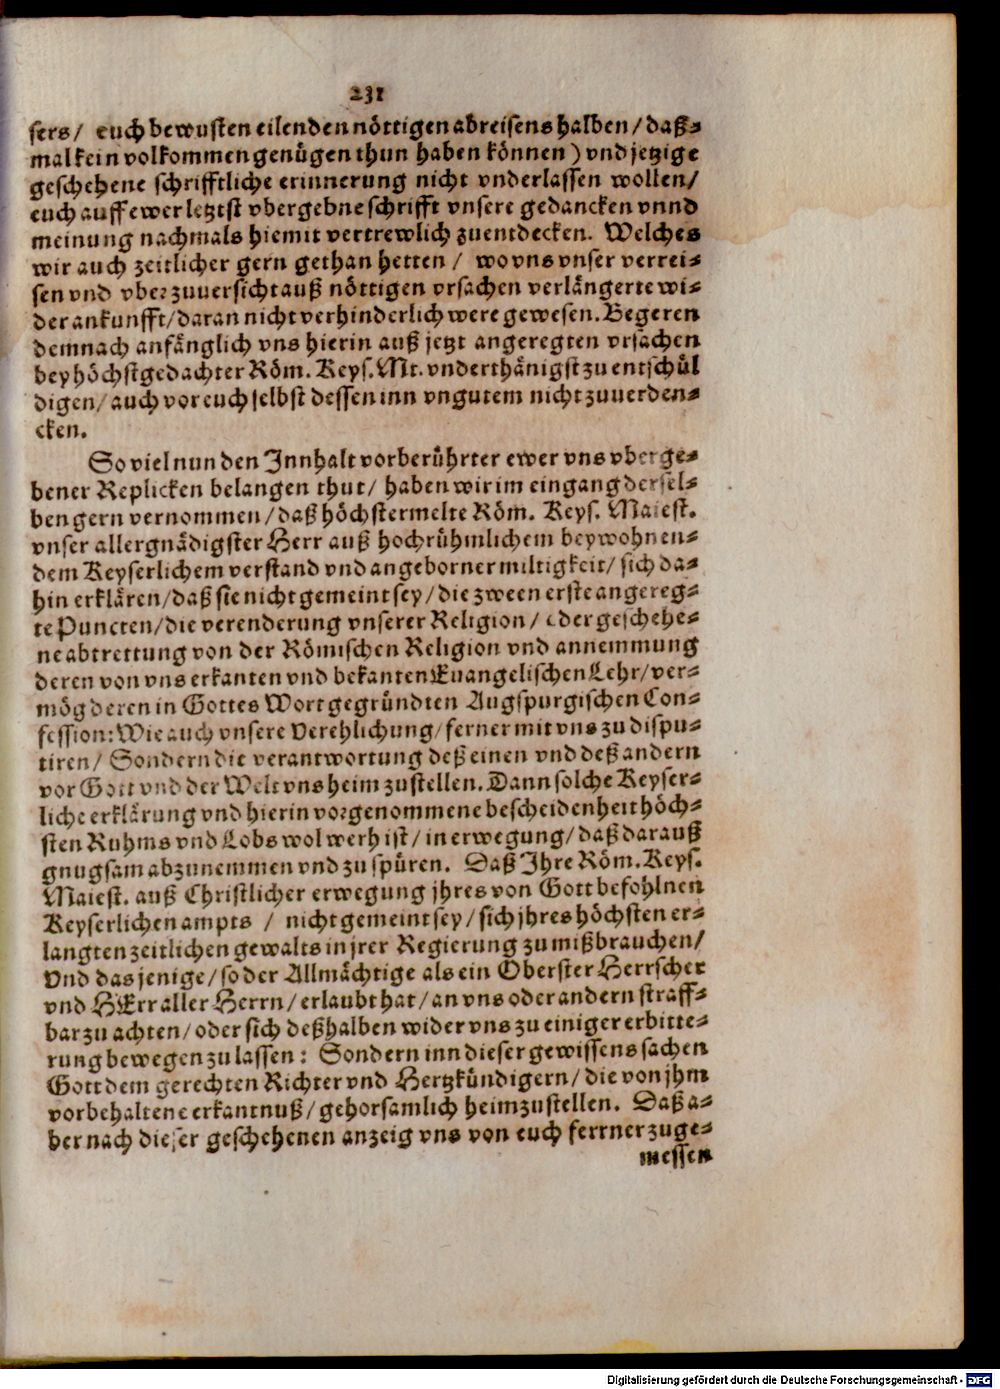 231
sers/ euch bewusten eilenden nöttigen abreisens halben/daß⸗
mal kein volkommen genügen thun haben können) vnd jetzige
geschehene schrifftliche erinnerung nicht vnderlassen wollen/
euch auff ewer letztst vbergebne schrifft vnsere gedancken vnnd
meinung nachmals hiemit vertrewlich zuentdecken. Welches
wir auch zeitlicher gern gethan hetten / wo vns vnser verrei⸗
sen vnd vber zuuersicht auß nöttigen vrsachen verlängerte wi⸗
der ankunfft/daran nicht verhinderlich were gewesen. Begeren
demnach anfänglich vns hierin auß jetzt angeregten vrsachen
bey höchstgedachter Röm. Keys. Mt. vnderthänigst zu entschül
digen/auch vor euch selbst dessen inn vngutem nicht zuuerden⸗
cken.
So viel nun den Innhalt vorberührter ewer vns vberge⸗
bener Replicken belangen thut/ haben wir im eingang dersel⸗
ben gern vernommen/daß höchstermelte Röm. Keys. Maiest.
vnser allergnädigster Herr auß hochrühmlichem beywohnen⸗
dem Keyserlichem verstand vnd angeborner miltigkeit/sich da⸗
hin erklären/daß sie nicht gemeint sey/die zween erste angereg⸗
te Puncten/die verenderung vnserer Religion/ oder geschehe⸗
ne abtrettung von der Römischen Religion vnd annemmung
deren von vns erkanten vnd bekanten Euangelischen Lehr/ver⸗
mög deren in Gottes Wort gegründten Augspurgischen Con⸗
fession: Wie auch vnsere Verehlichung/ferner mit vns zu dispu⸗
tiren/ Sondern die verantwortung deß einen vnd deß andern
vor Gott vnd der Welt vns heim zustellen. Dann solche Keyser⸗
liche erklärung vnd hierin vorgenommene bescheidenheit höch⸗
sten Ruhms vnd Lobs wol werh ist/in erwegung/daß darauß
gnugsam abzunemmen vnd zu spüren. Daß Ihre Röm. Keys.
Maiest. auß Christlicher erwegung jhres von Gott befohlnen
Keyserlichen ampts / nicht gemeint sey/sich jhres höchsten er⸗
langten zeitlichen gewalts in jrer Regierung zu mißbrauchen/
Vnd das jenige/so der Allmächtige als ein Oberster Herrscher
vnd HErr aller Herrn/erlaubt hat/an vns oder andern straff⸗
bar zu achten/oder sich deßhalben wider vns zu einiger erbitte⸗
rung bewegen zu lassen: Sondern inn dieser gewissens sachen
Gott dem gerechten Richter vnd Hertzkündigern/die von jhm
vorbehaltene erkantnuß/gehorsamlich heimzustellen. Daß a⸗
ber nach dieser geschehenen anzeig vns von euch ferrner zuge⸗
messen
Digitalisierung gefördert durch die Deutsche Forschungsgemeinschaft - DFG